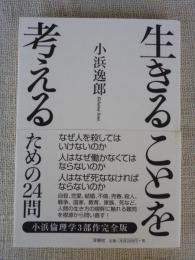 生きることを
考える
ための24問
小浜逸郎
なぜ人を殺しては
いけないのか
人はなぜ働かなくては
ならないのか
人はなぜ死ななければ
ならないのか
自殺、恋愛、結婚、不倫、売春、殺人、
戦争、国家、教育、家族、死など、
人間の生き方の根幹に触れる難問
を根底から問い直す!
小浜倫理学3部作完全版
洋泉社